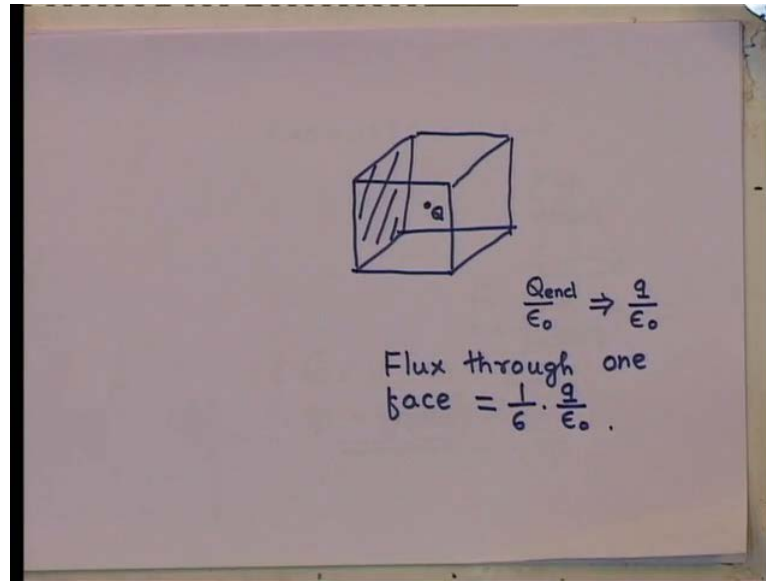 Q
Qencl/ϵ₀ ⇒ q/ϵ₀
Flux through one
face = 1/6 · q/ϵ₀ .